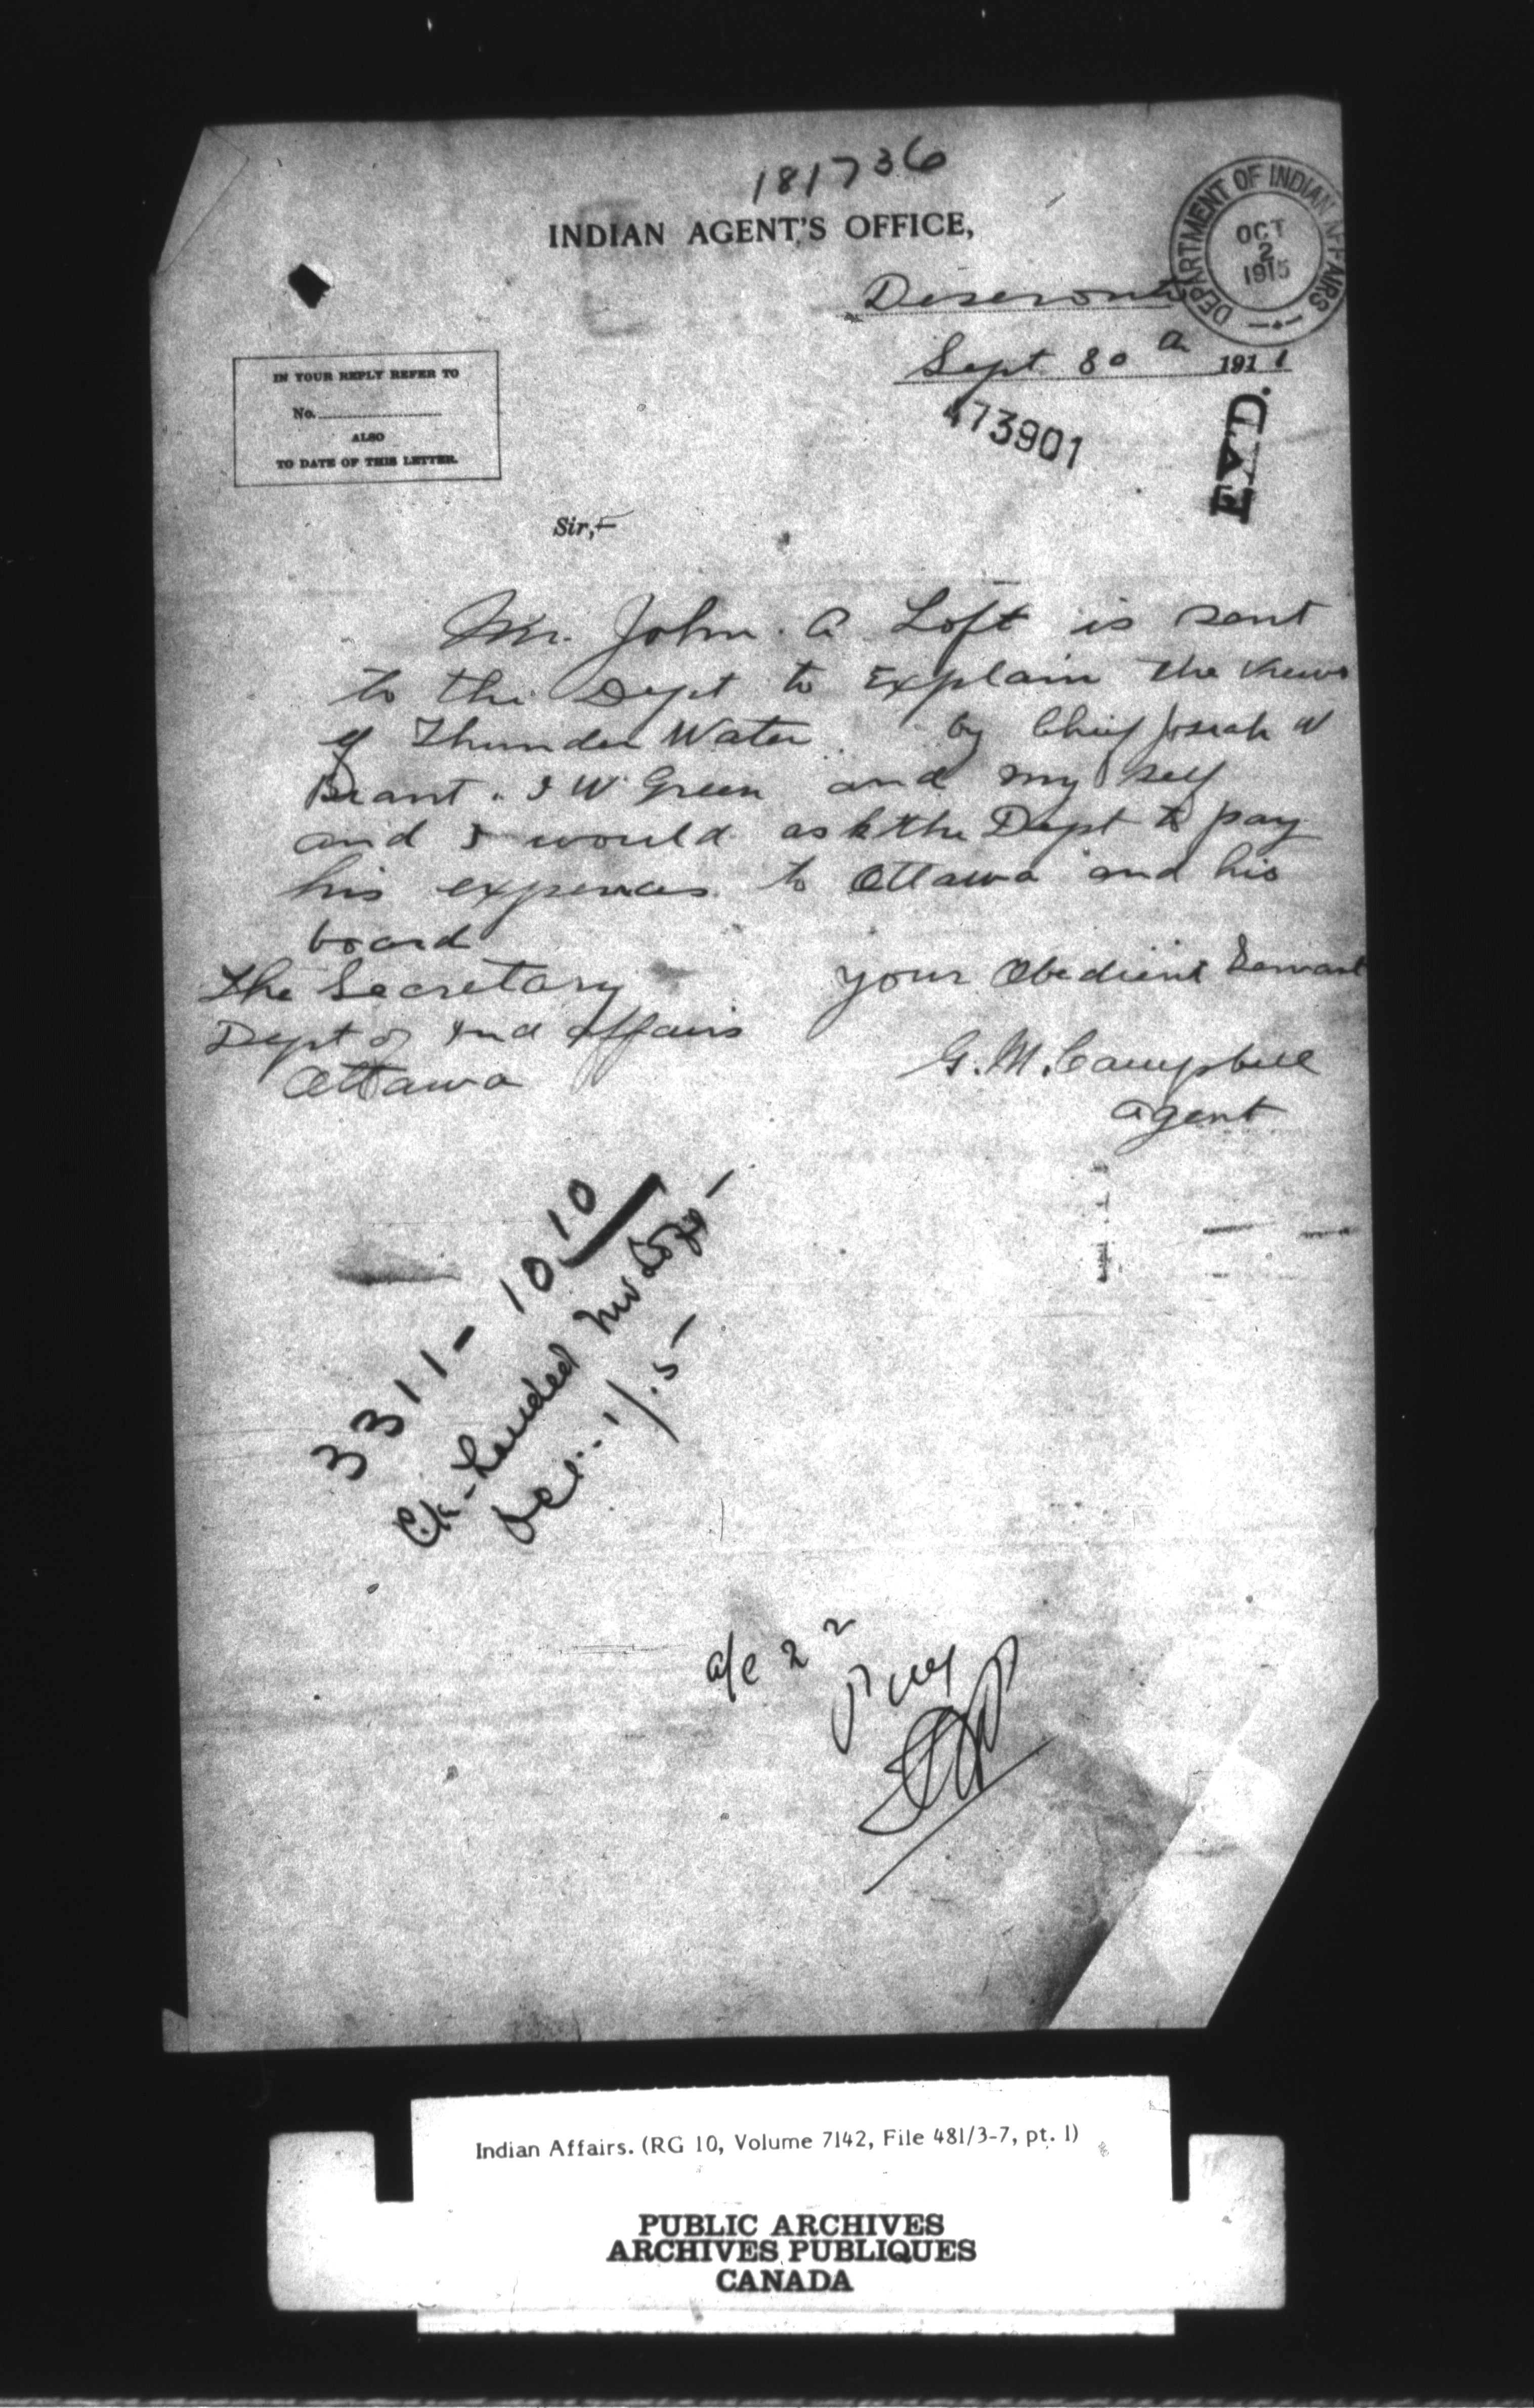 181736
INDIAN AGENT'S OFFICE,
DEPARTMENT OF INDIAN AFFAIRS
OCT
2
1915
Deseronto
Sept 30 th 191
473901
IN YOUR REPLY REFER TO
No.
ALSO
TO DATE OF THIS LETTER.
Sir,—
Mr. John. A Loft is sent
to the Dept to Explain the views
of Thunder Water. by Chief Josiah W
Brant. I W. Green and my self
and I would ask the Dept to pay
his expences to Ottawa and his
board
your Obedient Servant
The Secretary
Dept of Ind Affairs
Ottawa
G. M. Campbell
agent
3311 - 10 10
Ck - handed Mr Loft -
Oct. 1/15 -
a/c 2 2
Indian Affairs. (RG 10, Volume 7142, File 481/3-7, pt. 1)
PUBLIC ARCHIVES
ARCHIVES PUBLIQUES
CANADA